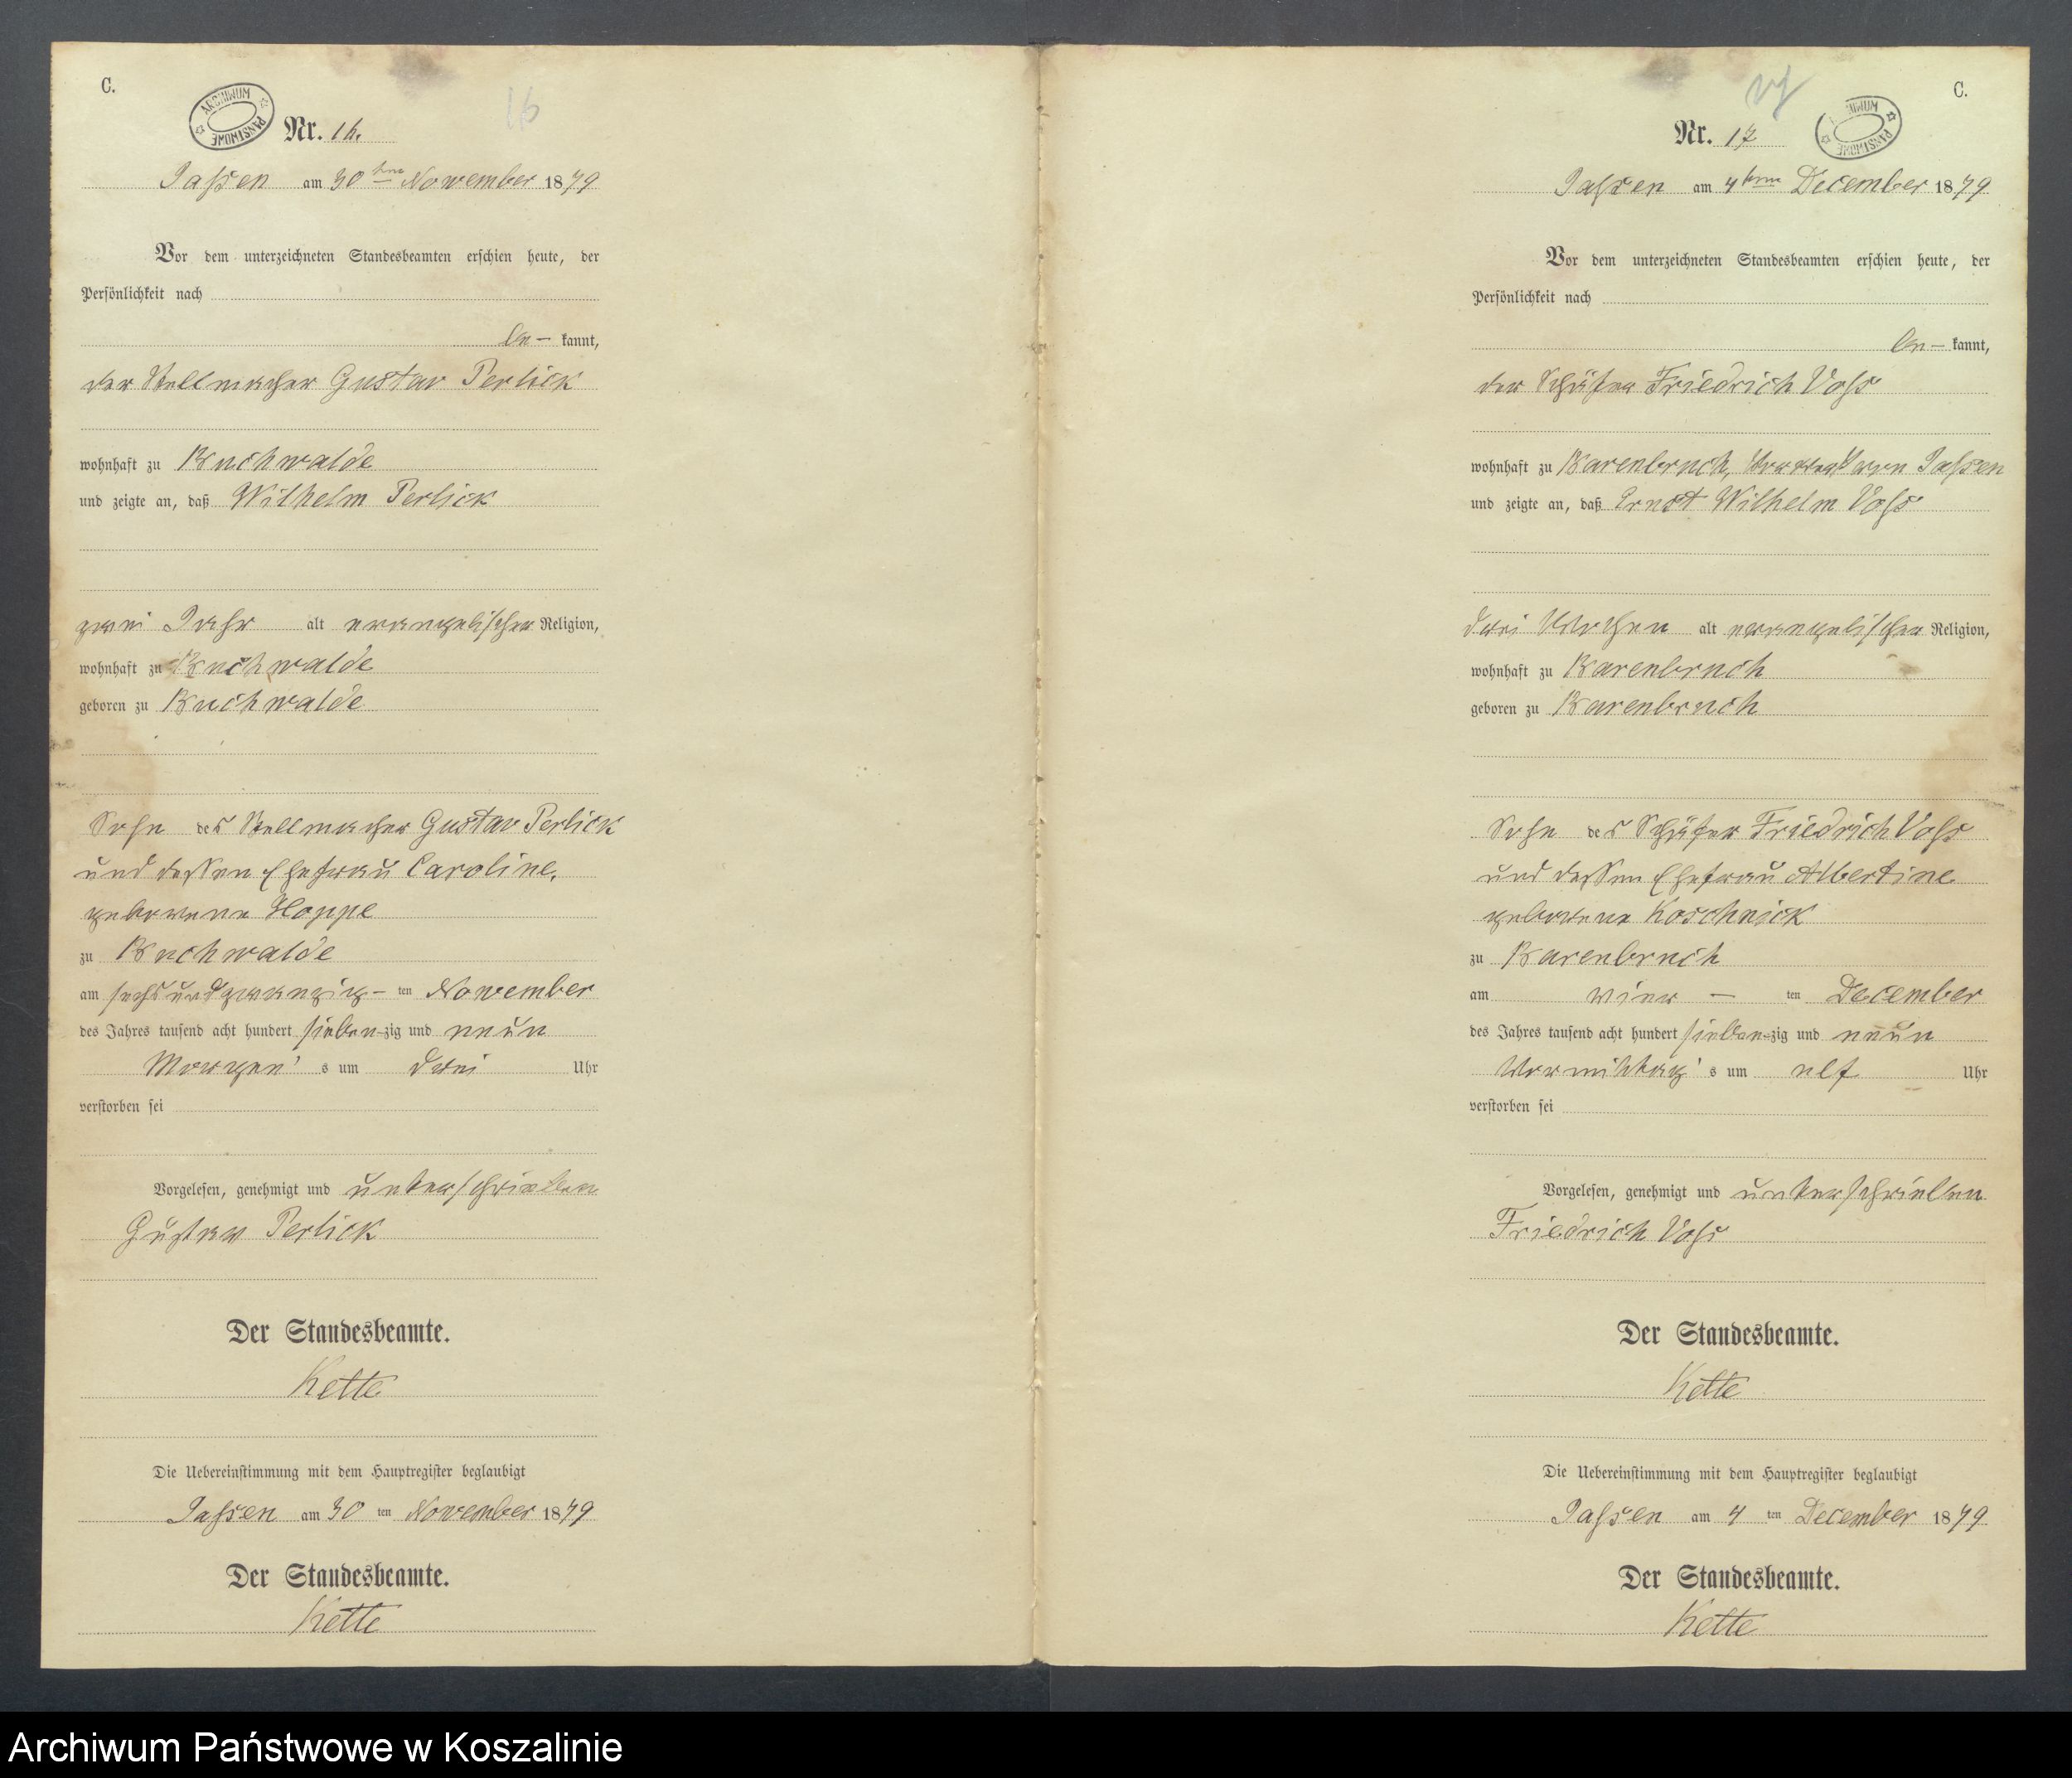 C.
ARCHIWUM PAŃSTWOWE
16
Nr. 16.
Jassen am 30ten November 1879
Vor dem unterzeichneten Standesbeamten erschien heute, der
Persönlichkeit nach
be- kannt,
der Stellmacher Gustav Perlick
wohnhaft zu Buchwalde
und zeigte an, daß Wilhelm Perlick
zwei Jahr alt evangelischer Religion,
wohnhaft zu Buchwalde
geboren zu Buchwalde
Sohn des Stellmacher Gustav Perlick
und dessen Ehefrau Caroline,
geborene Hoppe
zu Buchwalde
am sechsundzwanzig- ten November
des Jahres tausend acht hundert sieben-zig und neun
Morgen's um drei Uhr
verstorben sei
Vorgelesen, genehmigt und unterschrieben
Gustav Perlick
Der Standesbeamte.
Kette
Die Uebereinstimmung mit dem Hauptregister beglaubigt
Jassen am 30 ten November 1879
Der Standesbeamte.
Kette
C.
Nr. 17
Jassen am 4ten December 1879
Vor dem unterzeichneten Standesbeamten erschien heute, der
Persönlichkeit nach
be- kannt,
der Schäfer Friedrich Voß
wohnhaft zu Barenbruch, Jassen
und zeigte an, daß Ernst Wilhelm Voß
drei Wochen alt evangelischer Religion,
wohnhaft zu Barenbruch
geboren zu Barenbruch
Sohn des Schäfer Friedrich Voß
und dessen Ehefrau Albertine
geborene Koschnick
zu Barenbruch
am vier - ten December
des Jahres tausend acht hundert sieben-zig und neun
Vormittag's um elf Uhr
verstorben sei
Vorgelesen, genehmigt und unterschrieben
Friedrich Voß
Der Standesbeamte.
Kette
Die Uebereinstimmung mit dem Hauptregister beglaubigt
Jassen am 4 ten December 1879
Der Standesbeamte.
Kette
Archiwum Państwowe w Koszalinie